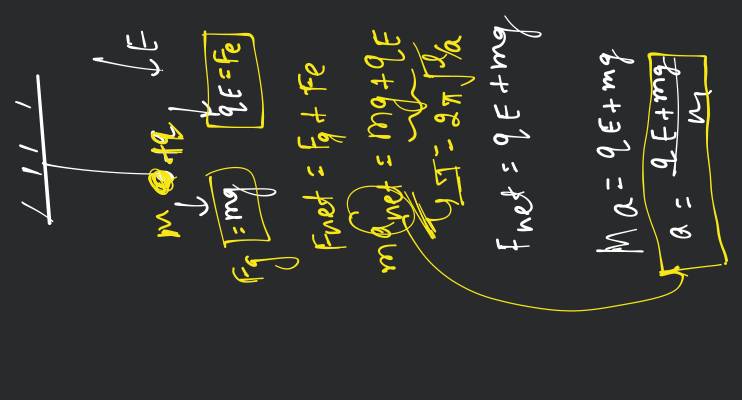 ↓E
m +q
qE = Fe
Fg = mg
Fnet = Fg + Fe
manet = mg + qE
T = 2π√l/a
Fnet = qE + mg
Ma = qE + mg
a = qE + mg / m